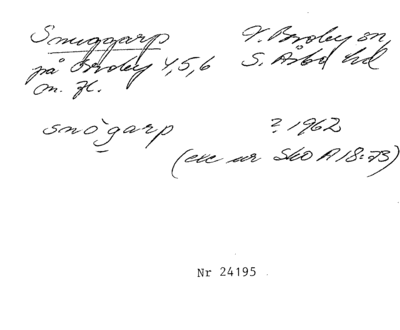 Smuggarp V. Broby sn,
på Broby 4,5,6 S. Åsbo hd
m. fl.
snògarp ? 1962
(exc ur SkO A 18:73)
Nr 24195